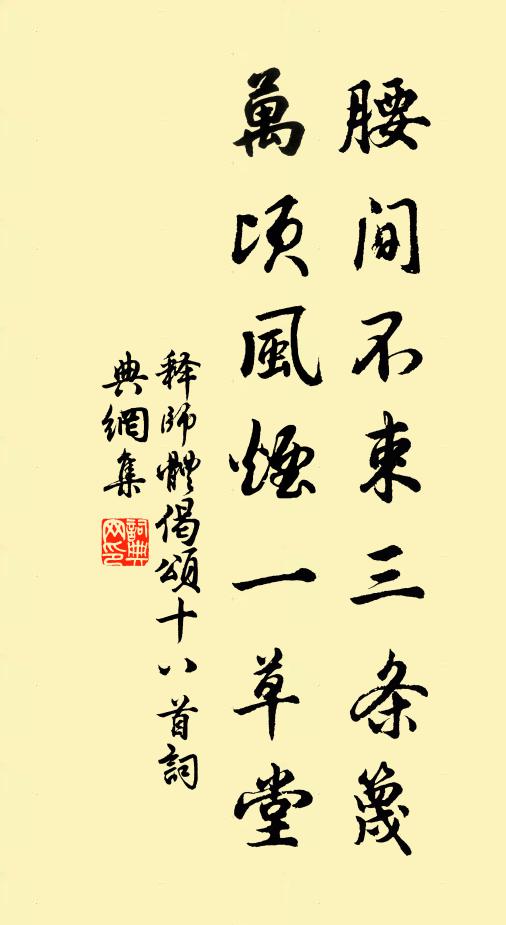 腰间不束三条篾
萬頃風煙一草堂
释師體偈頌十八首詞
典網集
詞典網印